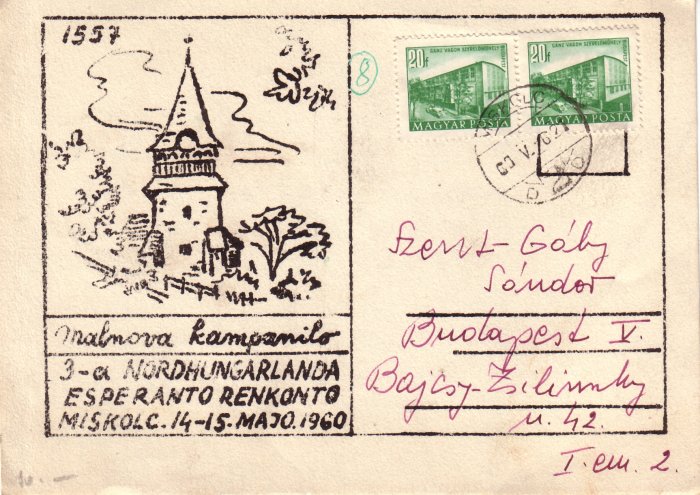 1557
malnova kampanilo
3-a NORDHUNGARLANDA
ESPERANTO RENKONTO
MISKOLC. 14-15. MAJO. 1960
8
20f
GANZ VAGON SZERELŐMŰHELY
MAGYAR POSTA
20f
GANZ VAGON SZERELŐMŰHELY
MAGYAR POSTA
Szent-Gály
Sándor
Budapest V.
Bajcsy-Zsilinszky
u. 42.
I. em. 2.